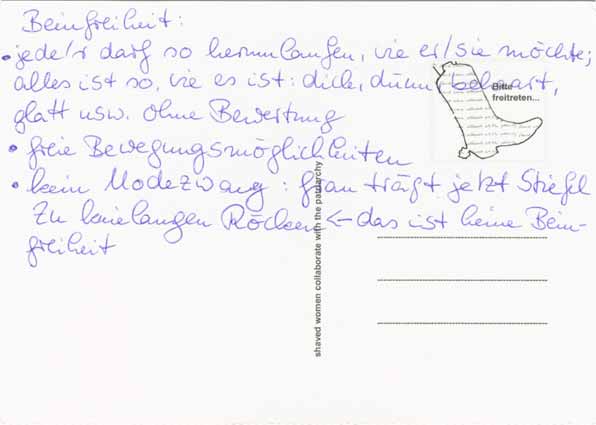 Beinfreiheit:
• jede/r darf so herumlaufen, wie er/sie möchte;
alles ist so, wie es ist: dick, dünn, behaart,
glatt usw. ohne Bewertung
• freie Bewegungsmöglichkeiten
• kein Modezwang: frau trägt jetzt Stiefel
zu knielangen Röcken ← das ist keine Bein-
freiheit
Bitte
freitreten...
shaved women collaborate with the patriarchy